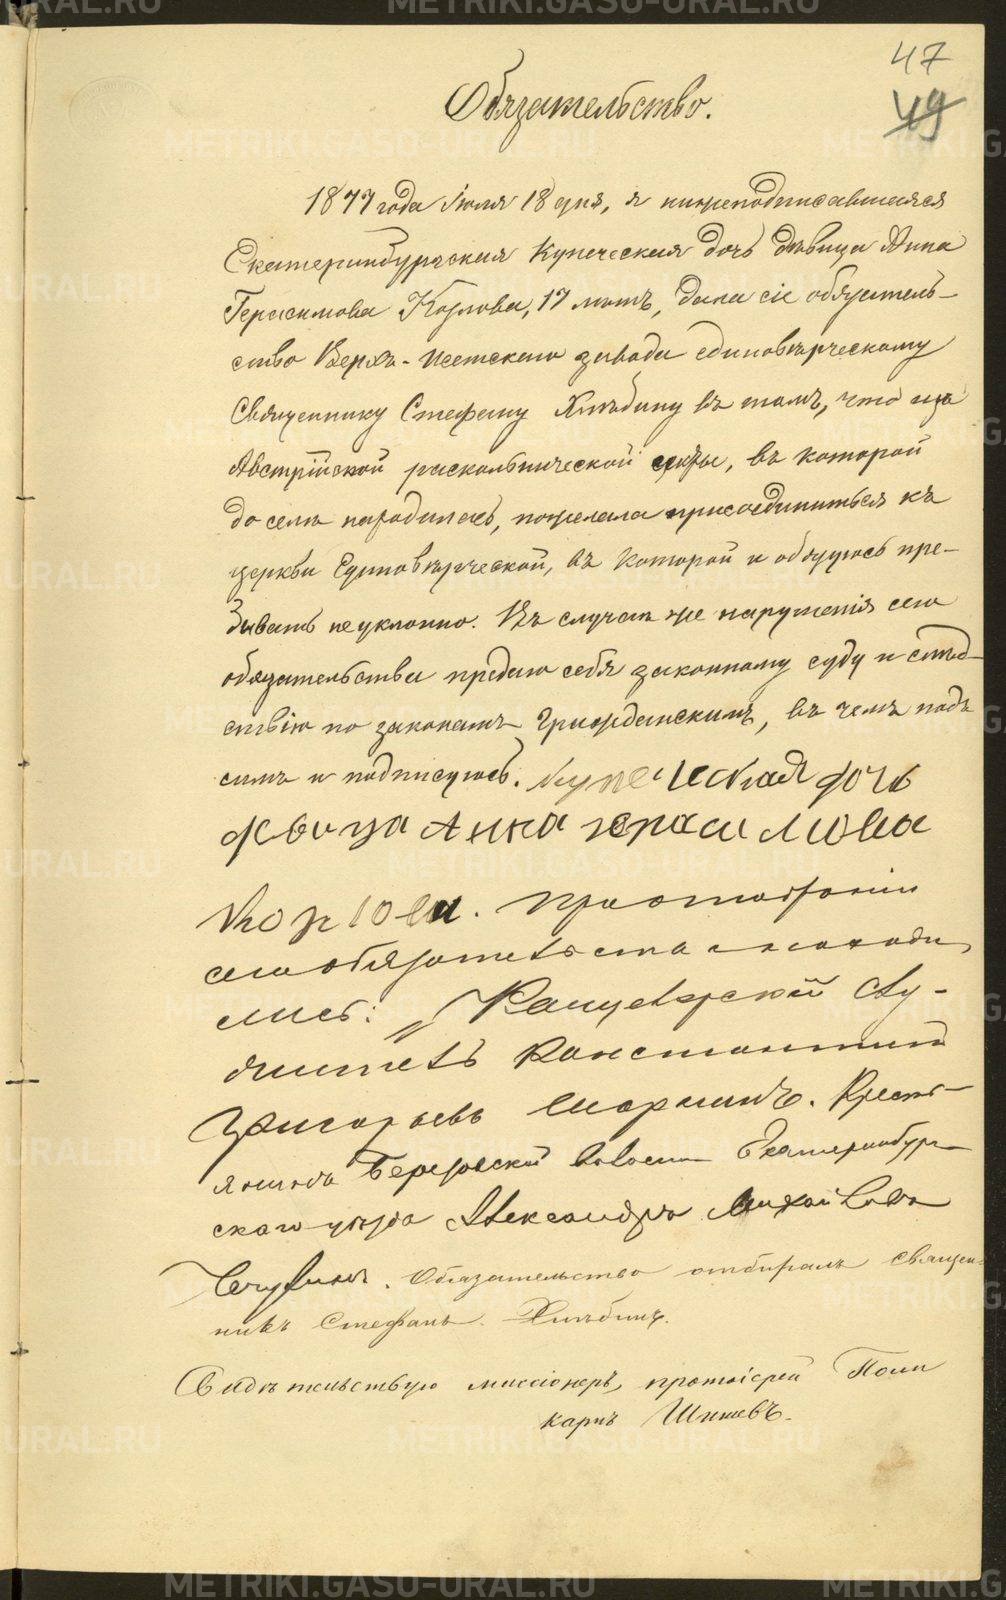 47
49
Обязательство.
1877 года Іюля 18 дня, я нижеподписавшаяся
Екатеринбургская Купеческая дочь дѣвица Анна
Герасимова Козлова, 17 лѣтъ, дала сіе обязатель-
ство Верхъ-Исетскаго завода единовѣрческому
Священнику Стефану Хлѣбину въ томъ, что изъ
Австрійской раскольнической секты, въ которой
до селѣ находилась, пожелала присоединиться къ
церкви Единовѣрческой, въ которой и обязуюсь пре-
бывать неуклонно. Въ случаѣ же нарушенія сего
обязательства предаю себя законному суду и слѣд-
ствію по законамъ Гражданскимъ, въ чемъ подъ
симъ и подписуюсь. Купеческая дочь
Анна
При отобраніи
сего обязательства находи
лись: Канцелярскій Слу-
житель Константинъ
Григорьевъ Крестъ-
янинъ Березовской волости Екатеринбург-
скаго уѣзда Александръ Михайловъ
Обязательство отбиралъ Священ-
никъ Стефанъ Хлѣбинъ.
Свидѣтельствую миссіонеръ, протоіерей Поли
карпъ
METRIKI.GASO-URAL.RU